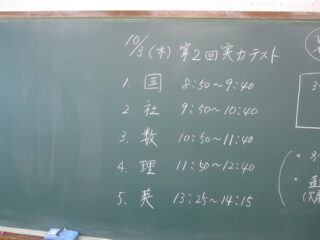 10/3(木) 第2回実力テスト
1. 国 8:50～9:40
2. 社 9:50～10:40
3. 数 10:50～11:40
4. 理 11:50～12:40
5. 英 13:25～14:15